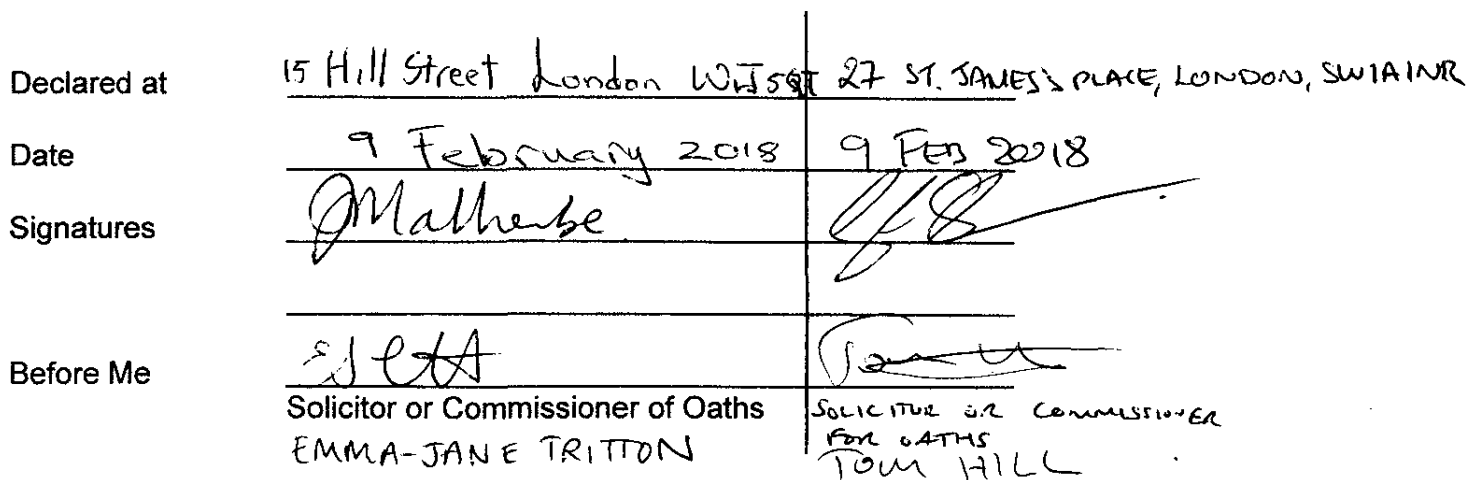 Declared at 15 Hill Street London W1J 5QT 27 ST. JAMES'S PLACE, LONDON, SW1A 1NR
Date 9 February 2018 9 FEB 2018
Signatures JMalherbe
Before Me
Solicitor or Commissioner of Oaths SOLICITOR OR COMMISSIONER
FOR OATHS
EMMA-JANE TRITTON TOM HILL